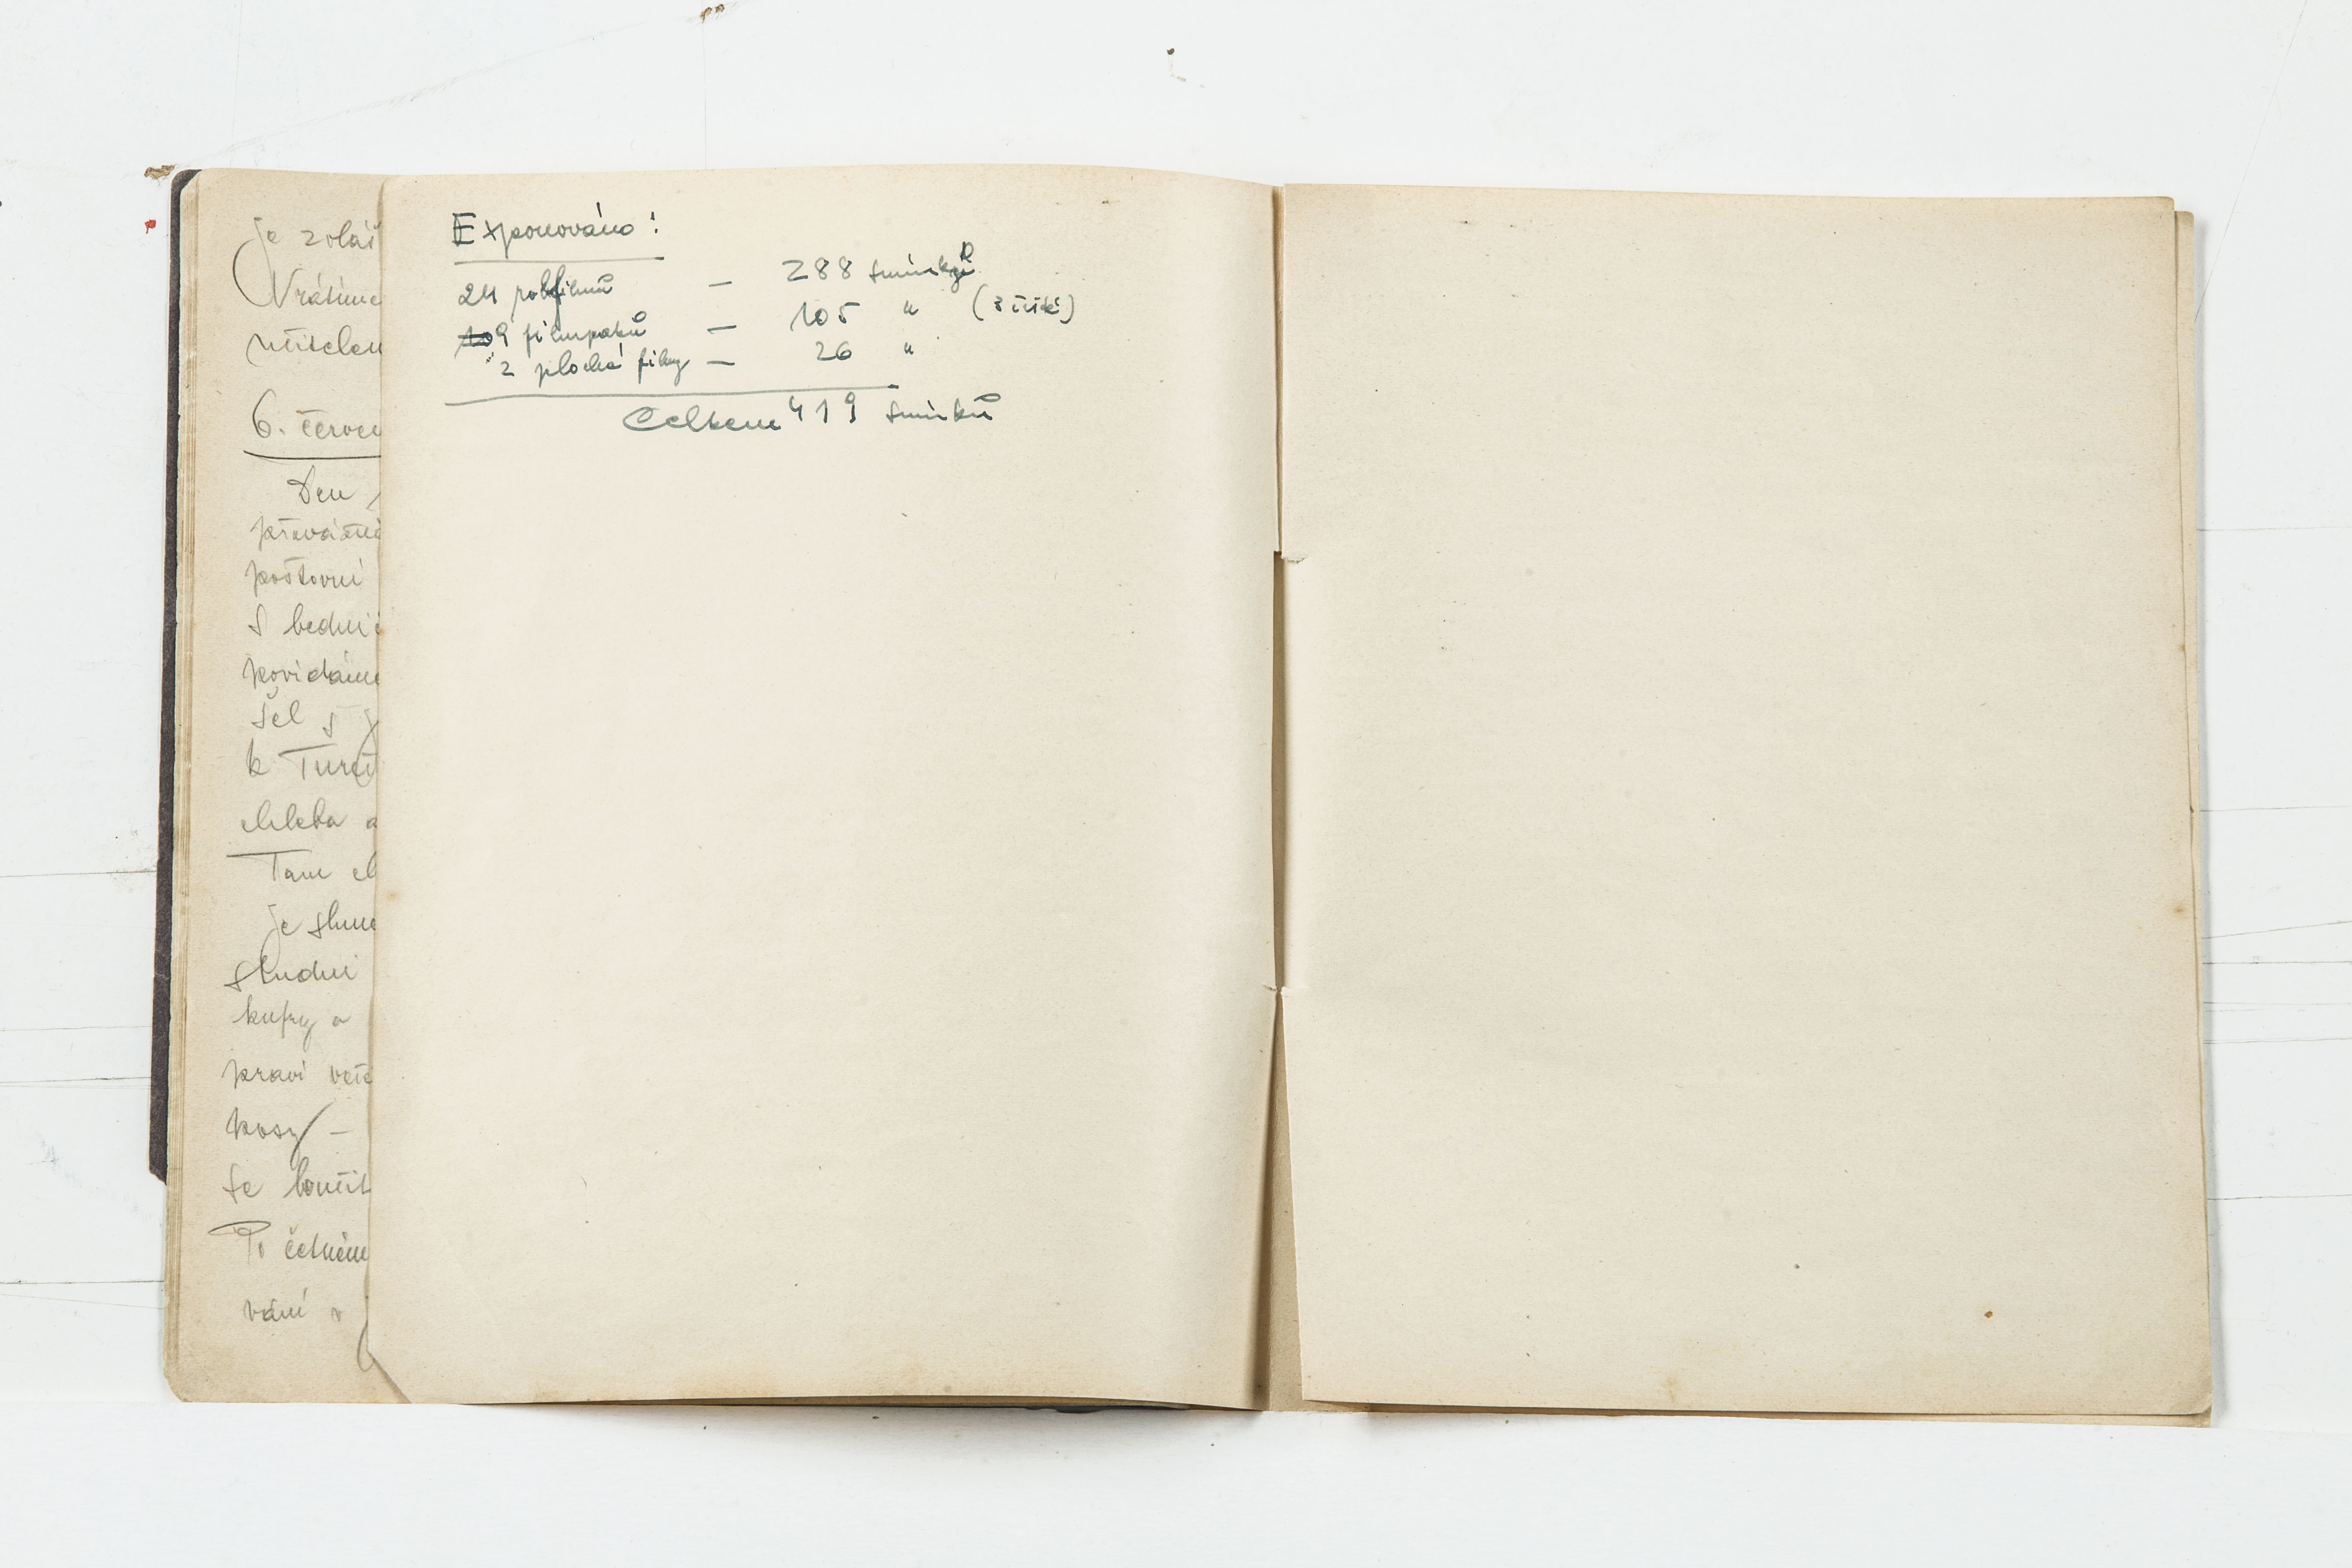 je zvláš
Vrátíme
učitelem
6. červen
Den
poštovní
S bední
povídáme
šel s
k Turo
chleba a
Tam
je slun
studni
kufry a
praví več
kosy –
se loučit
Po četném
vání v
Exponováno:
24 rollfilmů – 288 snímků
9 filmpaků – 105 " (3 čisté)
2 ploché filmy – 26 "
Celkem 419 snímků